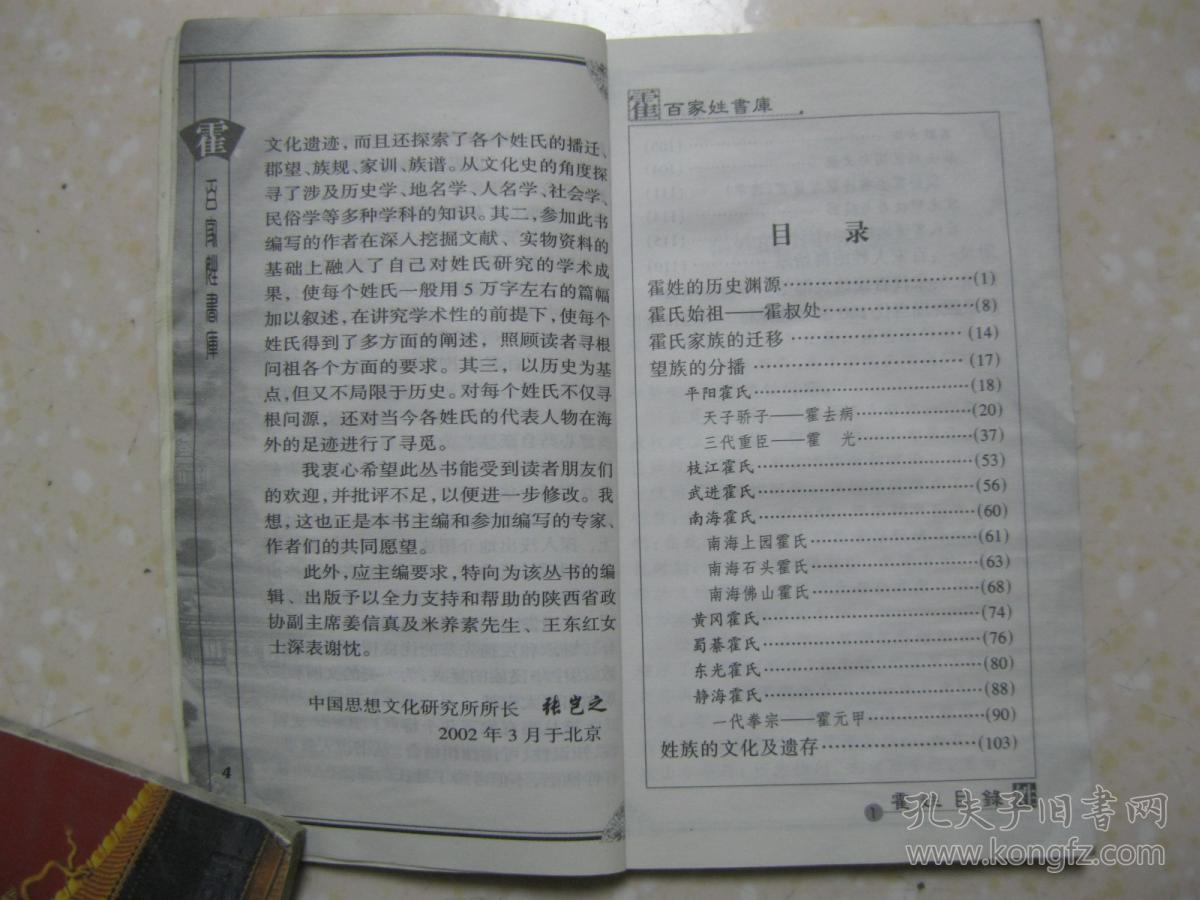 霍
百家姓書庫
文化遗迹，而且还探索了各个姓氏的播迁、
郡望、族规、家训、族谱。从文化史的角度探
寻了涉及历史学、地名学、人名学、社会学、
民俗学等多种学科的知识。其二，参加此书
编写的作者在深入挖掘文献、实物资料的
基础上融入了自己对姓氏研究的学术成
果，使每个姓氏一般用5万字左右的篇幅
加以叙述，在讲究学术性的前提下，使每个
姓氏得到了多方面的阐述，照顾读者寻根
问祖各个方面的要求。其三，以历史为基
点，但又不局限于历史。对每个姓氏不仅寻
根问源，还对当今各姓氏的代表人物在海
外的足迹进行了寻觅。
我衷心希望此丛书能受到读者朋友们
的欢迎，并批评不足，以便进一步修改。我
想，这也正是本书主编和参加编写的专家、
作者们的共同愿望。
此外，应主编要求，特向为该丛书的编
辑、出版予以全力支持和帮助的陕西省政
协副主席姜信真及米养素先生、王东红女
士深表谢忱。
中国思想文化研究所所长 张岂之
2002年3月于北京
4
霍百家姓書庫
目 录
霍姓的历史渊源……………………(1)
霍氏始祖——霍叔处………………(8)
霍氏家族的迁移……………………(14)
望族的分播…………………………(17)
平阳霍氏……………………………(18)
天子骄子——霍去病………………(20)
三代重臣——霍 光………………(37)
枝江霍氏……………………………(53)
武进霍氏……………………………(56)
南海霍氏……………………………(60)
南海上园霍氏………………………(61)
南海石头霍氏………………………(63)
南海佛山霍氏………………………(68)
黄冈霍氏……………………………(74)
蜀綦霍氏……………………………(76)
东光霍氏……………………………(80)
静海霍氏……………………………(88)
一代拳宗——霍元甲………………(90)
姓族的文化及遗存…………………(103)
1 霍姓目錄
孔夫子旧书网
www.kongfz.com